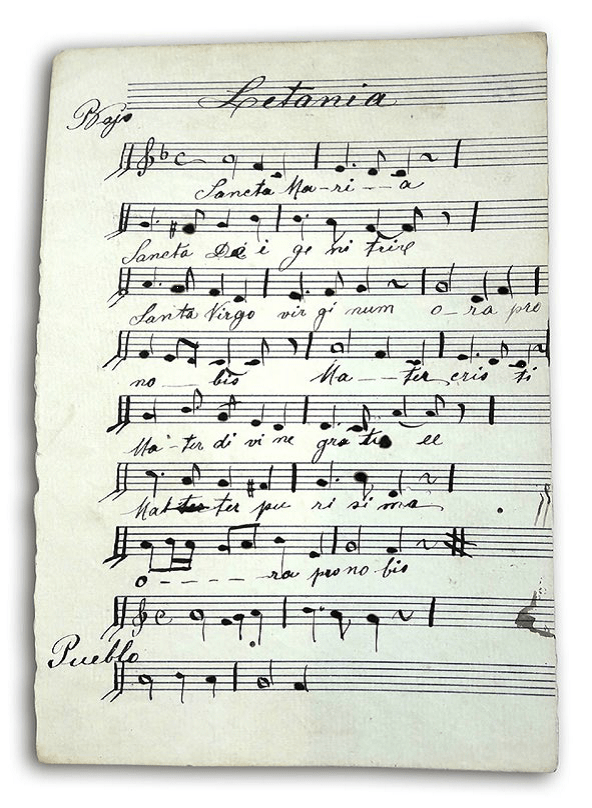 Letania
Bajo
Sancta Ma-ri--a
Sancta Dei i ge ni trire
Santa Virgo vir gi num o-ra pro
no--bis Ma--ter cris ti
Ma-ter di vi ne gra tie ee
Mat ter ter pu ri si ma
O-----ra pro no bis
Pueblo